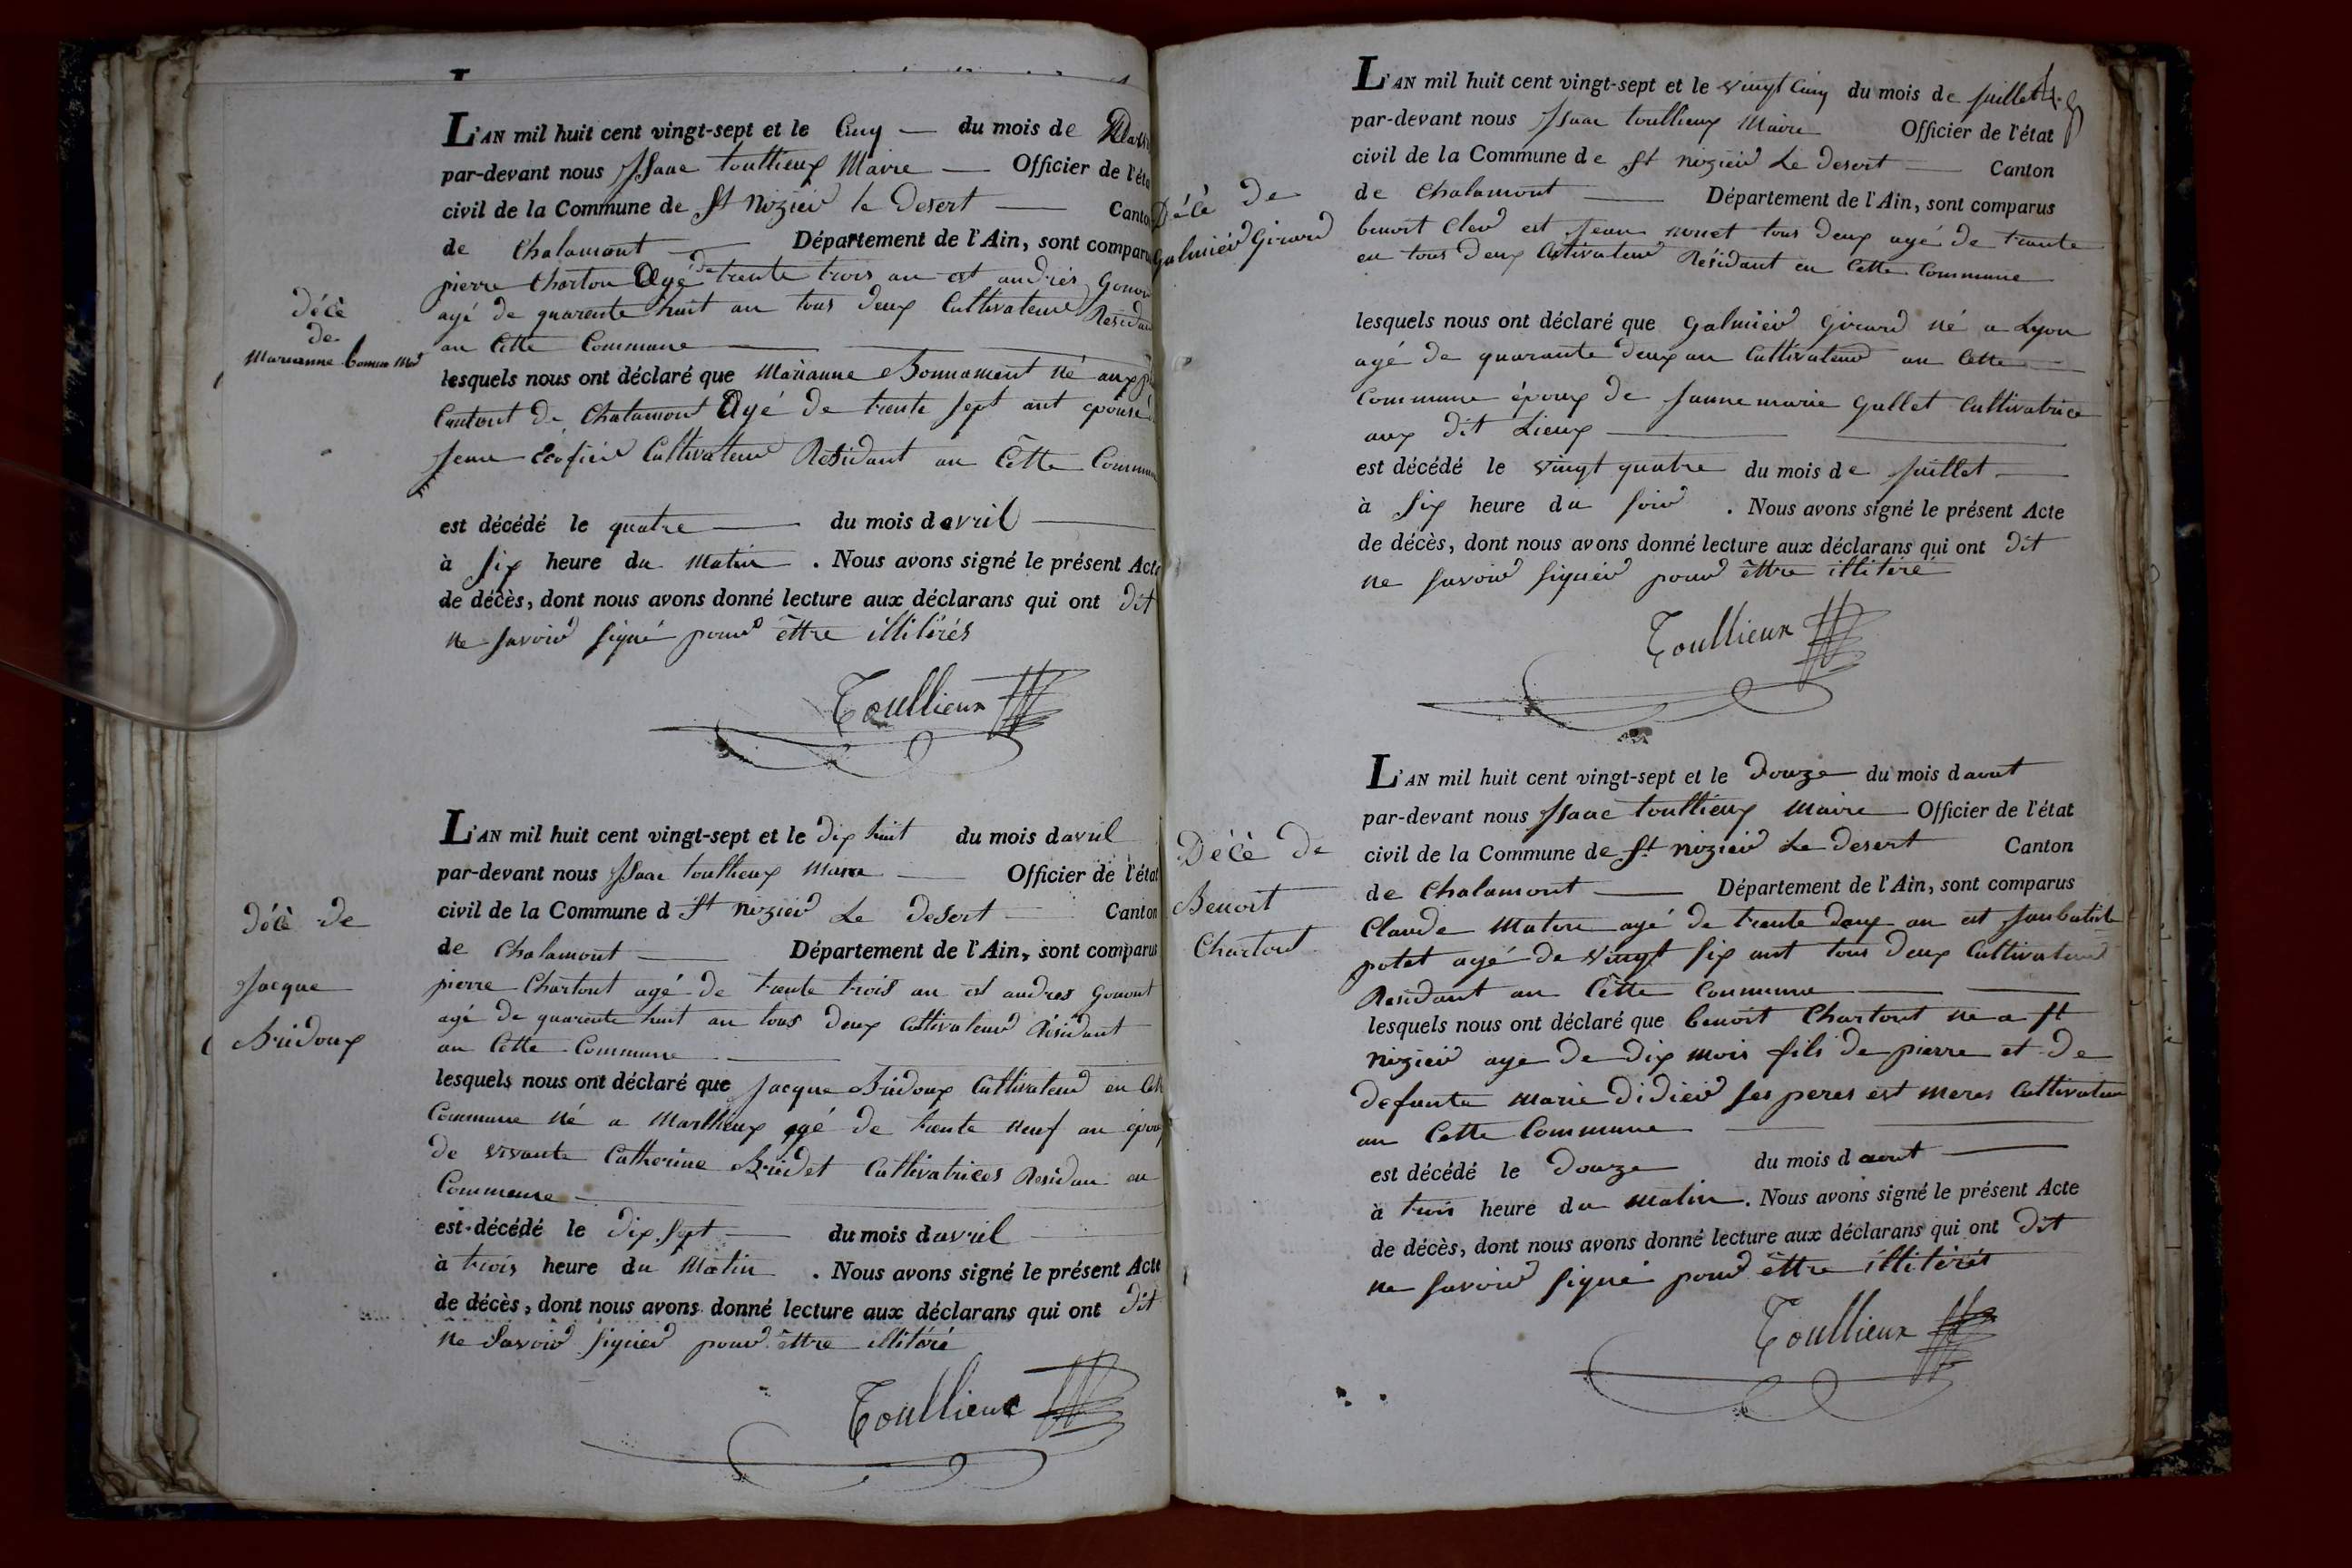 L'AN mil huit cent vingt-sept et le Cinq du mois de
par-devant nous Isaac toullieux Maire Officier de l'éta
civil de la Commune de St nizier le desert Canto
de Chalamont Département de l'Ain, sont comparu
pierre Charton Agé de trente trois an est andrés Gonon
agé de quarente huit an tous deux Cultivateur Residan
an Cette Commune
décè
de
Marianne
lesquels nous ont déclaré que Marianne Bonnament né aux
Cantont de Chalamont Agé de trente sept ant épouse
Jean Ecofier Cultivateur Residant an Cette Commun
est décédé le quatre du mois davril
à six heure du Matin . Nous avons signé le présent Acte
de décès, dont nous avons donné lecture aux déclarans qui ont dit
ne savoir signé pour êttre illitérés
Toullieux
L'AN mil huit cent vingt-sept et le dix huit du mois davril
par-devant nous Isaac toullieux Maire Officier de l'état
civil de la Commune d St nizier Le desert Canton
de Chalamont Département de l'Ain, sont comparus
décè de
Jacque
Bridoux
pierre Chartont agé de trente trois an est andres gonont
agé de quarente huit an tous deux Cultivateur Résidant
an Cette Commune
lesquels nous ont déclaré que Jacque Bridoux Cultivateur en Cet
Commune né a Marlheux agé de trente neuf an épou
de vivante Catherine Bridet Cultivatrices Residan an
Commune
est décédé le dix sept du mois davril
à trois heure du Matin . Nous avons signé le présent Acte
de décès, dont nous avons donné lecture aux déclarans qui ont dit
ne Savoir signer pour êttre illitéré
Toullieux
L'AN mil huit cent vingt-sept et le vingt Cinq du mois de juillet
par-devant nous Isaac toullieux Maire Officier de l'état
civil de la Commune de St nizier Le desert Canton
de Chalamont Département de l'Ain, sont comparus
Décè de
Galmier Girard
benoit Cler est Jean nonet tous deux agé de trante
en tous deux Cultivateur Résidant en Cette Commune
lesquels nous ont déclaré que galmier Girard né a Lyon
agé de quarante deux an Cultivateur an Cette
Commune époux de Jannemarie Gallet Cultivatrice
aux dit Lieux
est décédé le vingt quatre du mois de juillet
à six heure du soir . Nous avons signé le présent Acte
de décès, dont nous avons donné lecture aux déclarans qui ont dit
ne savoir signer pour êttre illitéré
Toullieux
L'AN mil huit cent vingt-sept et le douze du mois daout
par-devant nous Isaac toullieux Maire Officier de l'état
civil de la Commune de St nizier Le desert Canton
de Chalamont Département de l'Ain, sont comparus
Décè de
Benoit
Chartont
Claude Maton agé de trente deux an est Janbatist
potet agé de vingt six ant tous deux Cultivateur
Residant an Cette Commune
lesquels nous ont déclaré que benoit Chartont né a st
nizier age de dix mois fils de pierre et de
defunte marie didier ses peres est meres Cultivateur
an Cette Commune
est décédé le douze du mois daout
à trois heure du matin . Nous avons signé le présent Acte
de décès, dont nous avons donné lecture aux déclarans qui ont dit
ne savoir signé pour êttre illitérés
Toullieux